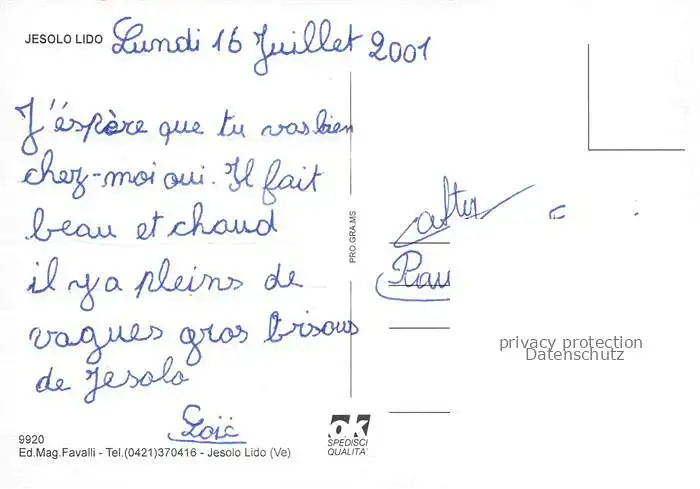 JESOLO LIDO Lundi 16 Juillet 2001
J'éspère que tu vas bien
chez-moi oui. Il fait
beau et chaud
il y a pleins de
vagues gros bisous
de Jesolo
Loïc
9920
Ed.Mag.Favalli - Tel.(0421)370416 - Jesolo Lido (Ve)
PRO.GRA.MS
ok
SPEDISCI
QUALITA'
privacy protection
Datenschutz